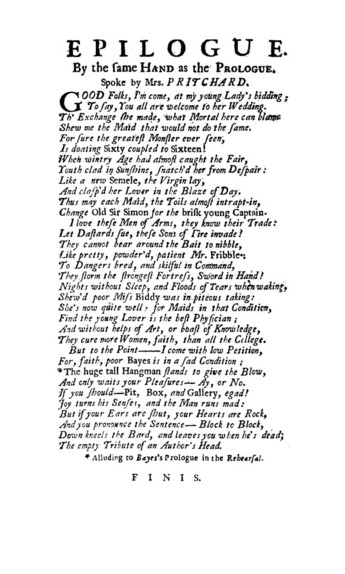 EPILOGUE.
By the ſame HAND as the PROLOGUE.
Spoke by Mrs. PRITCHARD.
GOOD Folks, I'm come, at my young Lady's bidding;
To ſay, You all are welcome to her Wedding.
Th' Exchange ſhe made, what Mortal here can blame
Shew me the Maid that would not do the ſame.
For ſure the greateſt Monſter ever ſeen,
Is doating Sixty coupled to Sixteen!
When wintry Age had almoſt caught the Fair,
Youth clad in Sunſhine, ſnatch'd her from Deſpair:
Like a new Semele, the Virgin lay,
And claſp'd her Lover in the Blaze of Day.
Thus may each Maid, the Toils almoſt intrapt-in,
Change Old Sir Simon for the briſk young Captain.
I love theſe Men of Arms, they know their Trade:
Let Daſtards ſue, theſe Sons of Fire invade!
They cannot bear around the Bait to nibble,
Like pretty, powder'd, patient Mr. Fribble.
To Dangers bred, and skilful in Command,
They ſtorm the ſtrongeſt Fortreſs, Sword in Hand!
Nights without Sleep, and Floods of Tears when waking,
Shew'd poor Miſs Biddy was in piteous taking:
She's now quite well; for Maids in that Condition,
Find the young Lover is the beſt Phyſician;
And without helps of Art, or boaſt of Knowledge,
They cure more Women, faith, than all the College.
But to the Point——I come with low Petition,
For, faith, poor Bayes is in a ſad Condition;
*The huge tall Hangman ſtands to give the Blow,
And only waits your Pleaſure— Ay, or No.
If you ſhould—Pit, Box, and Gallery, egad!
Joy turns his Senſes, and the Man runs mad:
But if your Ears are ſhut, your Hearts are Rock,
And you pronounce the Sentence— Block to Block,
Down kneels the Bard, and leaves you when he's dead;
The empty Tribute of an Author's Head.
* Alluding to Bayes's Prologue in the Rehearſal.
FINIS.